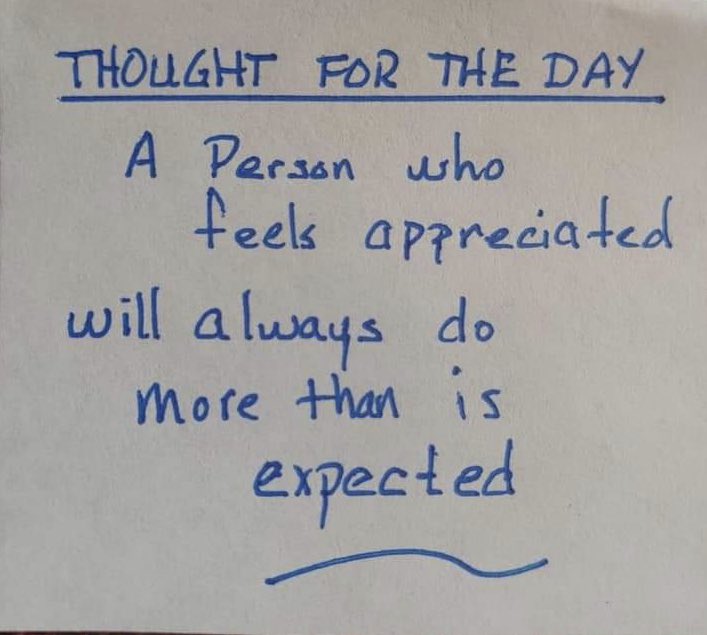 THOUGHT FOR THE DAY
A Person who
feels appreciated
will always do
more than is
expected